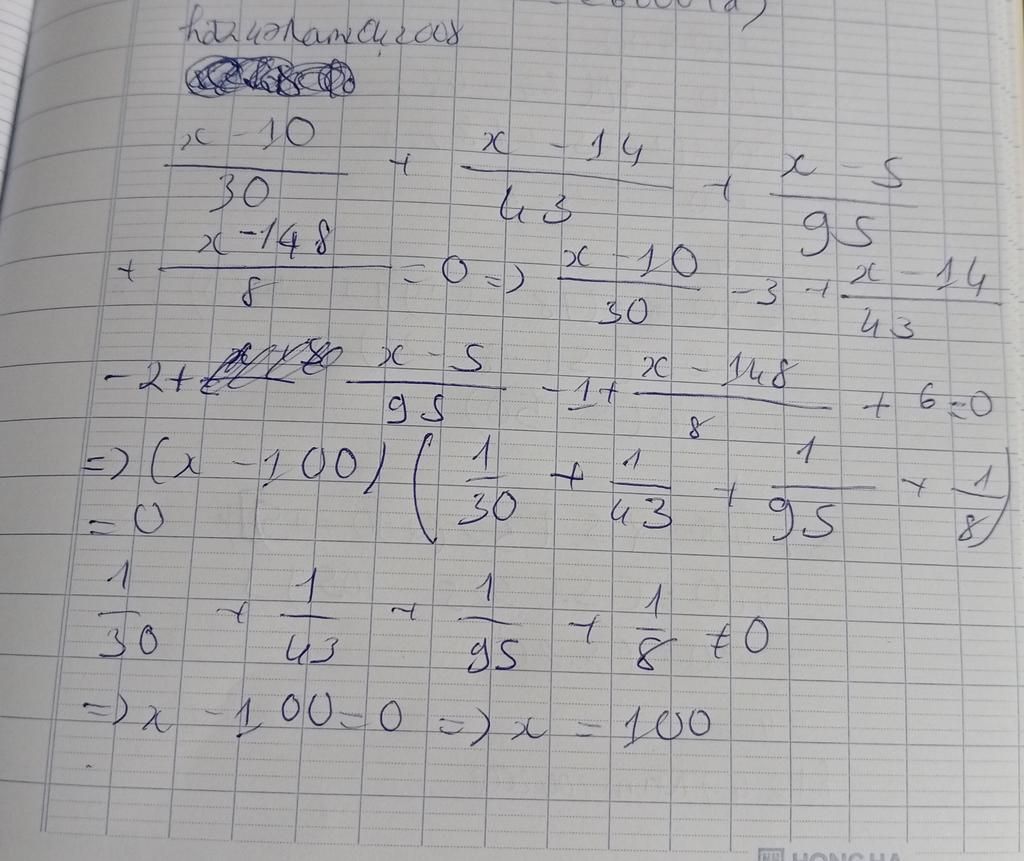 hazuonamicuz008
x - 10/30 + x - 14/43 + x - 5/95
+ x - 148/8 = 0 => x - 10/30 - 3 + x - 14/43
- 2 + x - 5/95 - 1 + x - 148/8 + 6 = 0
=> (x - 100) (1/30 + 1/43 + 1/95 + 1/8)
= 0
1/30 + 1/43 + 1/95 + 1/8 ≠ 0
=> x - 100 = 0 => x = 100
HONG HA